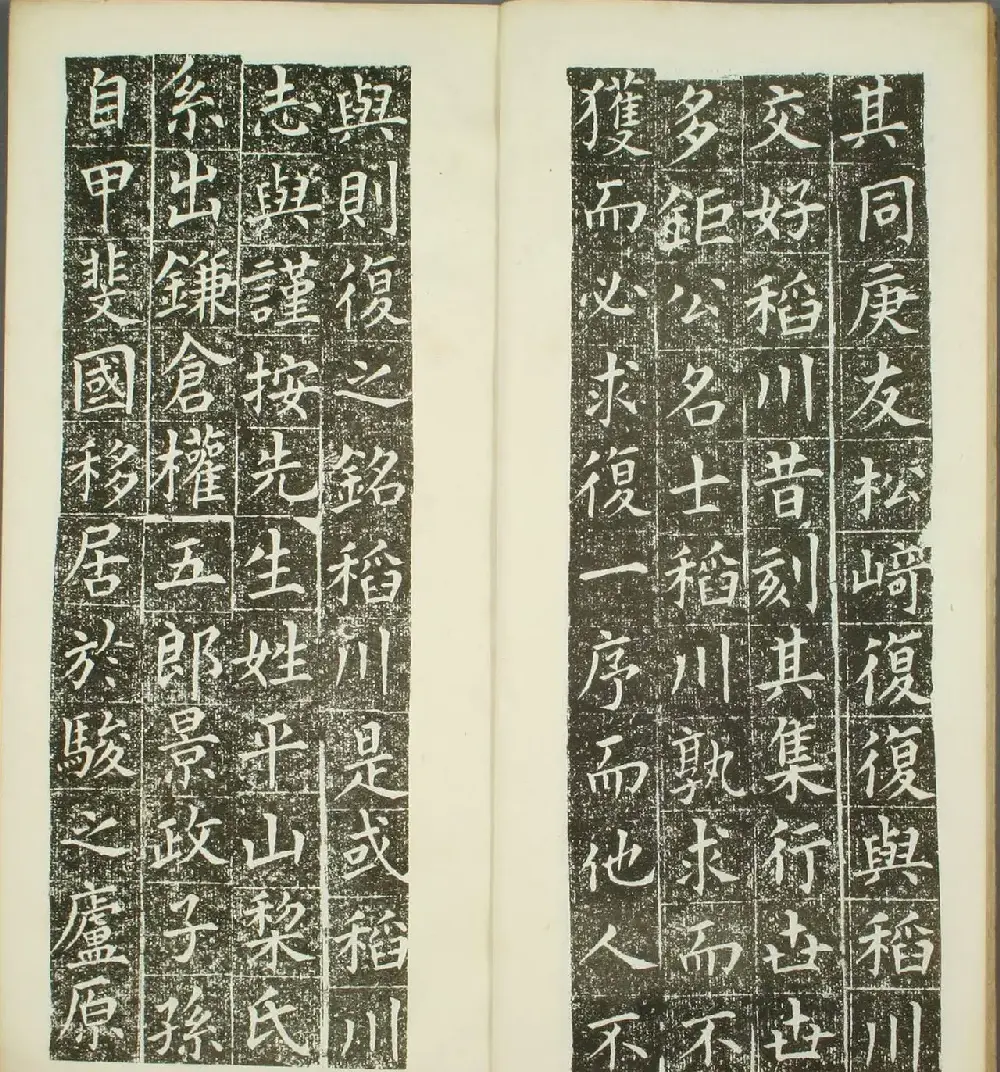 其同庚友松﨑復復與稻川
交好稻川昔刻其集行世世
多鉅公名士稻川孰求而不
獲而必求復一序而他人不
與則復之銘稻川是或稻川
志與謹按先生姓平山梨氏
系出鎌倉權五郎景政子孫
自甲斐國移居於駿之廬原